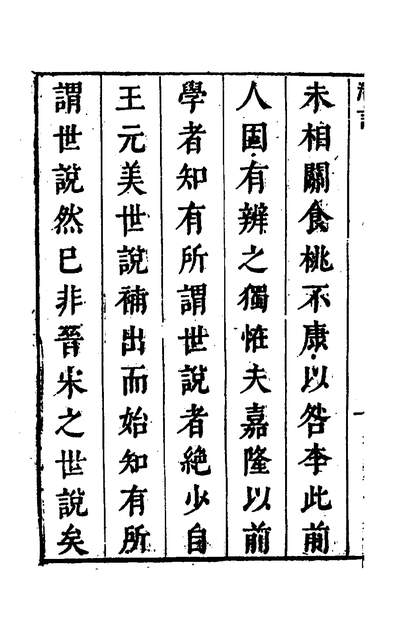 未相關食桃不康以咎李此前
人固有辨之獨恠夫嘉隆以前
學者知有所謂世說者絶少自
王元美世說補出而始知有所
謂世說然已非晉宋之世說矣